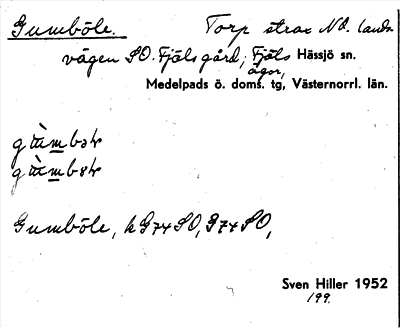 Gumböle. Torp strax Nd. lands-
vägen SO. Fjäls gård; Fjäls Hässjö sn.
ägor,
Medelpads ö. doms. tg, Västernorrl. län.
Gumböle, k G74SO, G74SO,
Sven Hiller 1952
199.